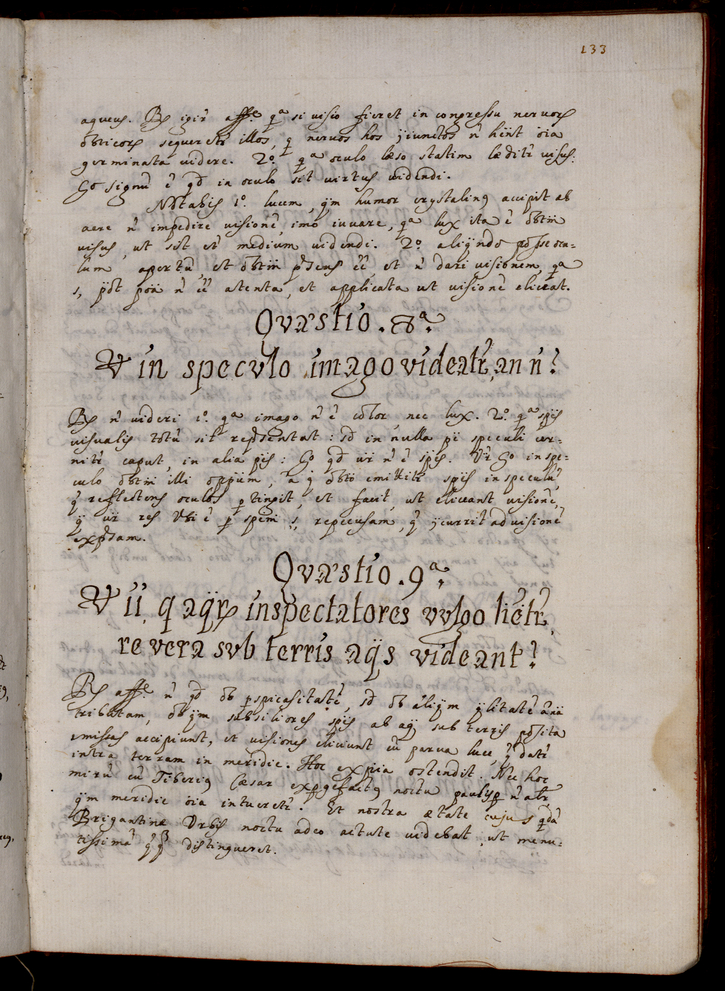 133
aqueus. Rs igir affe. qa si visio fieret in congressu nervorũ
obticorũ sequeretr illos, q nervos hos jũnctos ñ hñt oia
germinata videre. 2o. qa oculo læso statim læditr visus.
Go signũ ẽ qd in oculo sit virtus videndi.
Notabis 1o. lucem, qm humor crystalinq accipit ab
aere ñ impedire visionẽ, imo iuvare, qa lux ita ẽ obtm
visus, ut sit et medium videndi. 2o. aliqndo posse ocu-
lum apertũ, et obtm psens ẽe et ñ dari visionem, qa
s, poa ñ ẽe atenta, et applicata ut visionẽ eliceat.
Qvæstio. 8a.
V in specvlo imago videatr, an ñ?
Rs ñ videri 1o. qa imago ñ ẽ color nec lux. 2o. qa spis
visualis totũ sit repsentat: sd in nulla pe speculi cer-
nitr caput, in alia pes: Go qd vr ñ ẽ spis. Vr Go in spe-
culo obtm illi oppũm, a q obto emittitr spis in speculũ,
q reflectens oculos tingit, et facit, ut eliceant visionẽ,
q vr res ubi ẽ p spem s, repecusam, q jcurrit ad visionẽ
expsam.
Qvæstio. 9a.
V ii, q aqrũ inspectatores vvlgo hẽtr,
re vera svb terris aqs videant?
Rs affe. ñ qd ob pspicasitatẽ, sd ob aliqm qlitatẽ
tributam, ob qm subtiliores spes ab aqs sub terris posita
emissas accipiunt, et visiones eliciunt cũ parva luce, q datr
intra terram in meridie. Hoc expia ostendit. Nec hoc
mirũ cũ Tiberiq Cæsar expgefactq noctu paulisp ñ alr
qm meridie oia intueretr. Et nostra ætate cujus qdã
Brigantinæ Urbis noctu adeo acute videbat, ut menu-
tissima qq distingueret.